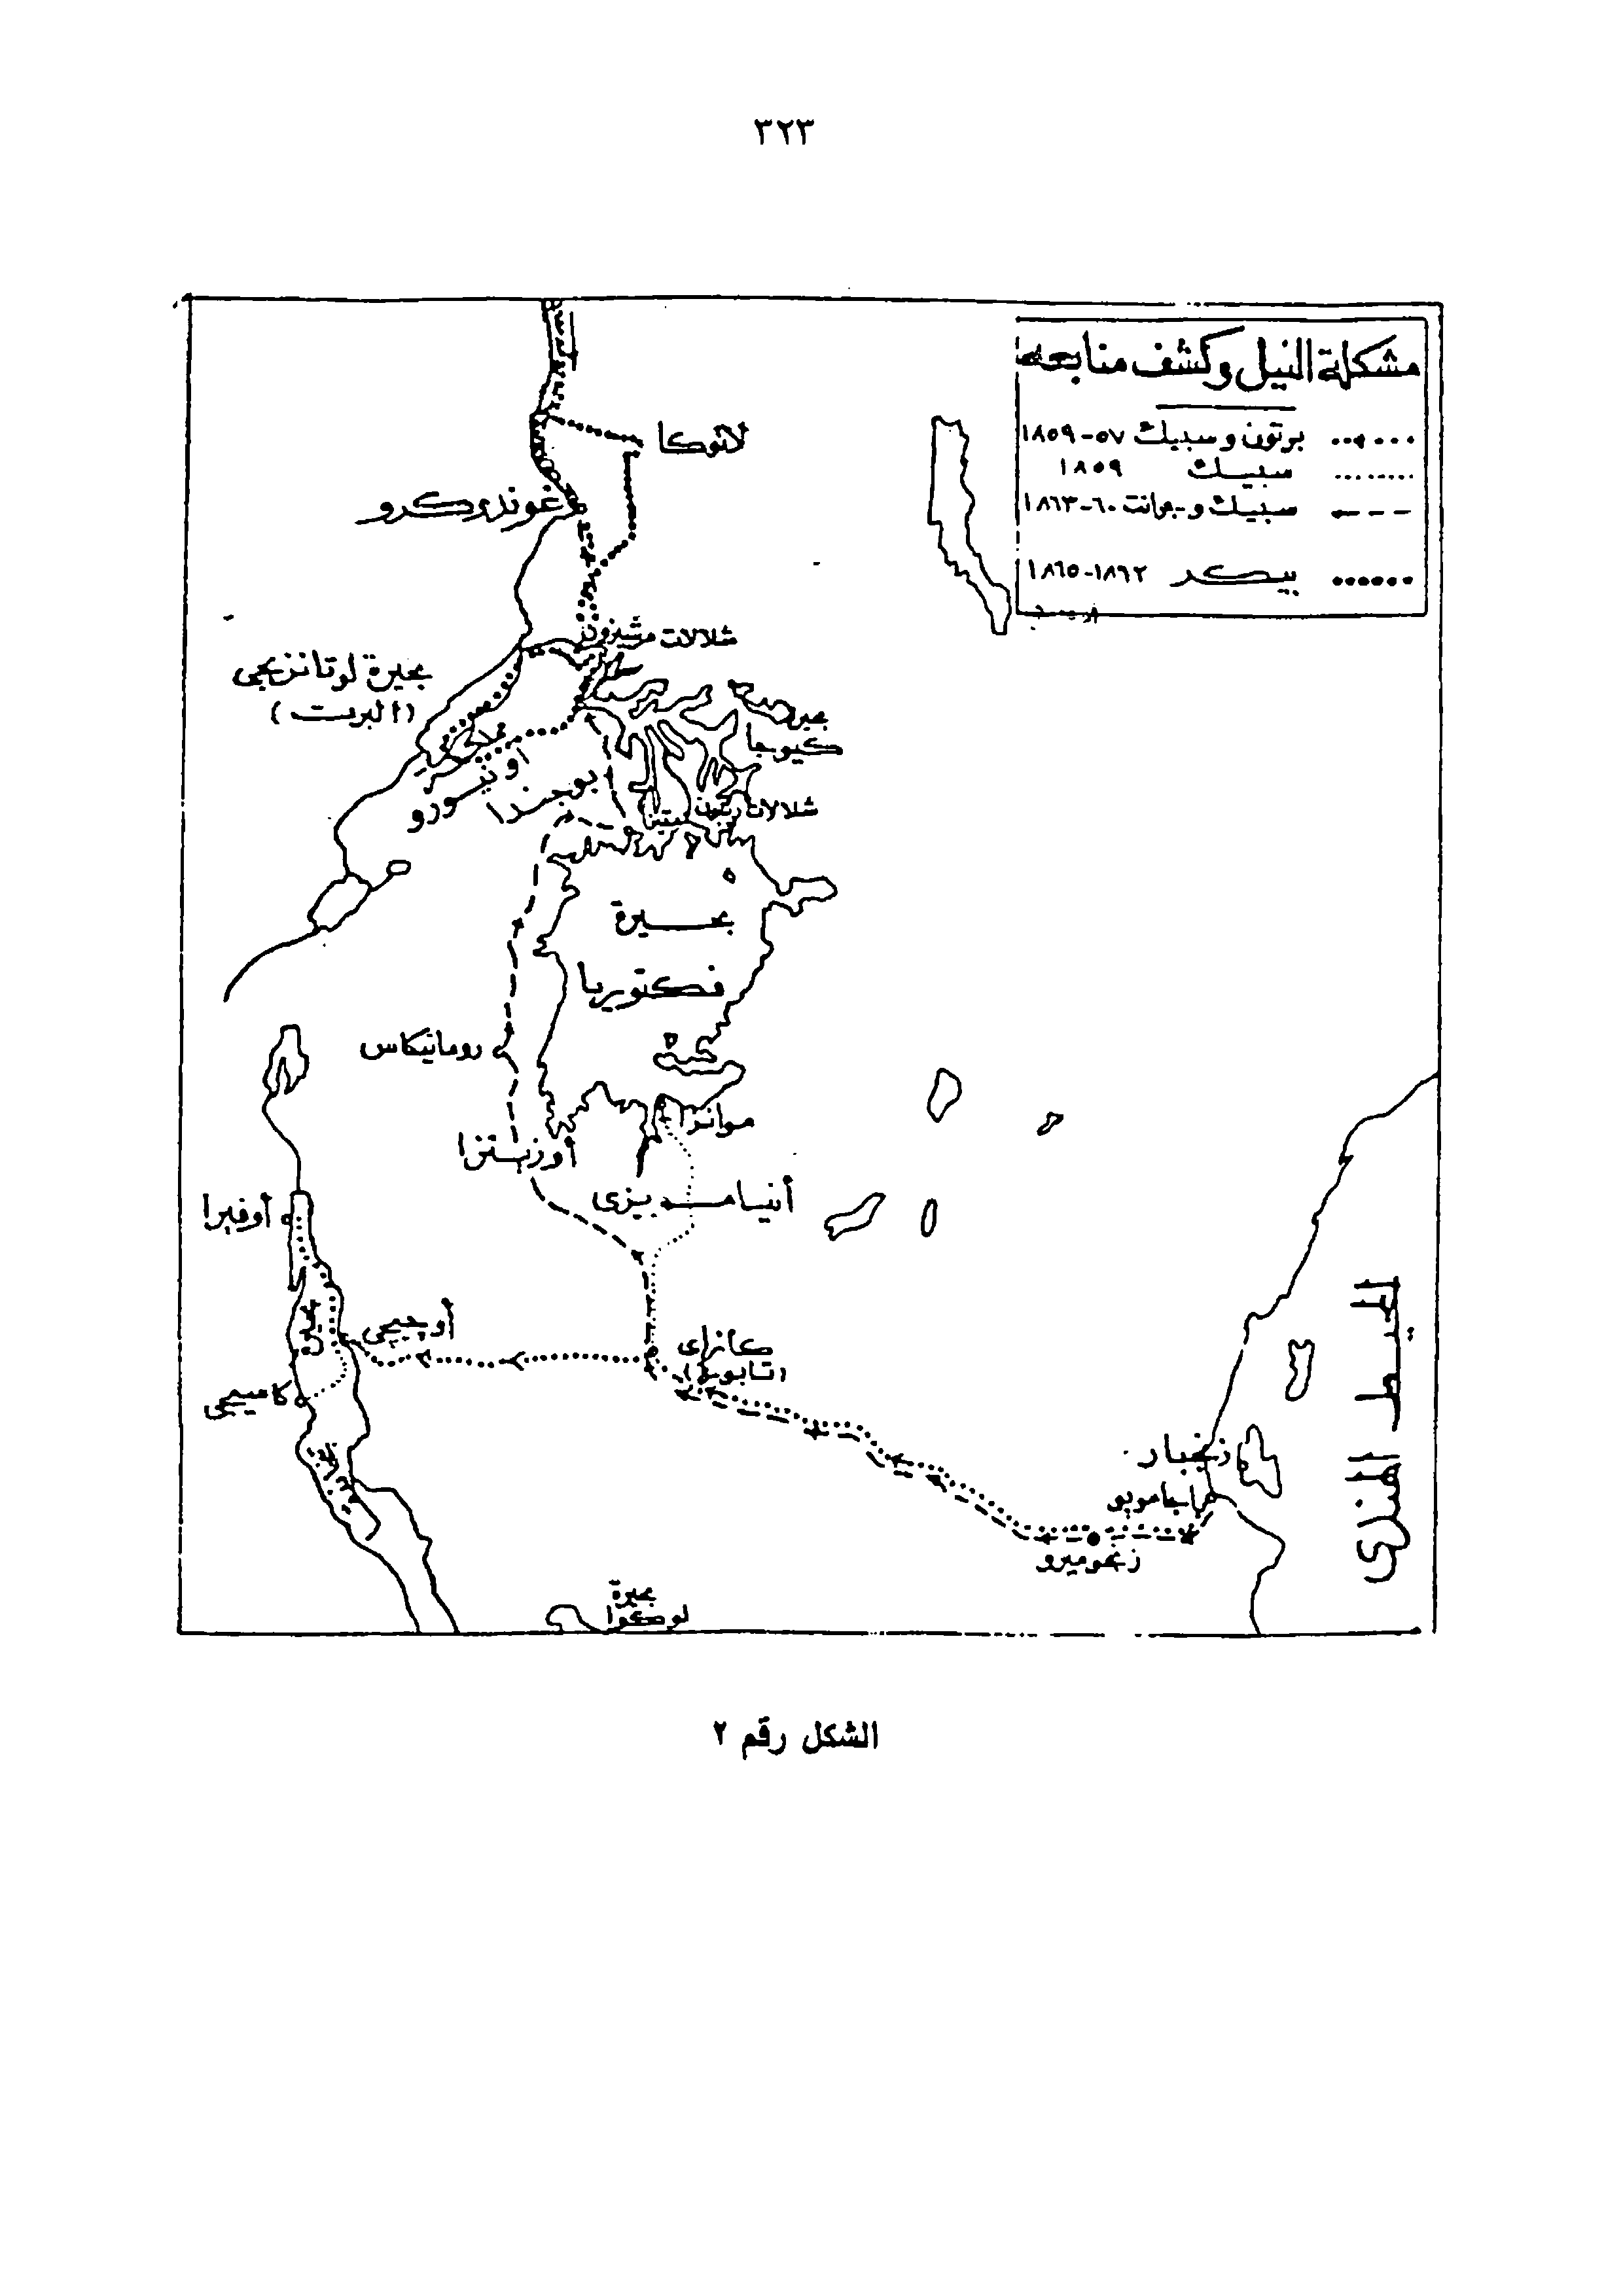 ٣٢٣
مشكلة النيل وكشف منابعه
برتون وسبيك ٥٧-١٨٥٩
سبيك ١٨٥٩
سبيك وجرانت ٦٠-١٨٦٣
بيكر ١٨٦٢-١٨٦٥
لاتوكا
غوندوكرو
شلالات مرشيزون
بحيرة لوتانزيجي
(البرت)
بحيرة
كيوجا
أونيورو
بوجندا
شلالات ريبون
بحيرة
فكتوريا
رومانيكاس
موانزا
أوزينزا
أنيامويزى
أوفيرا
أوجيجي
كازاى
(تابورا)
كاسيجي
زنجبار
باجامويو
زنجوميرو
المحيط الهندى
بحيرة
لوكوا
الشكل رقم ٢